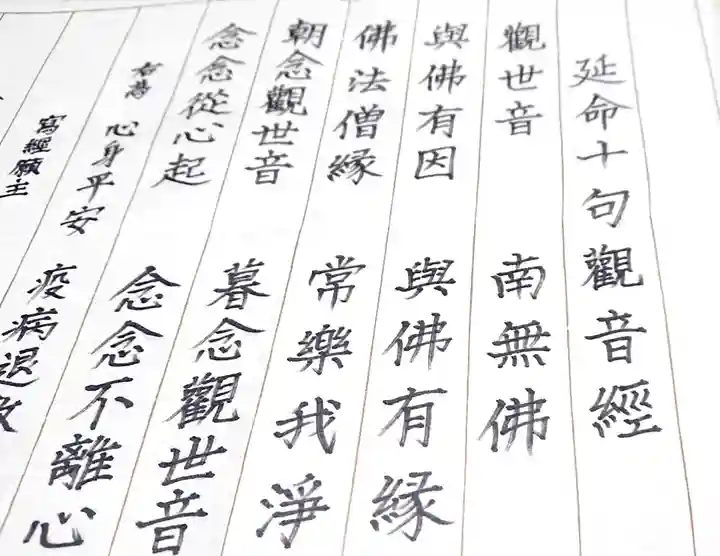 延命十句觀音經
觀世音 南無佛
與佛有因 與佛有縁
佛法僧縁 常樂我淨
朝念觀世音 暮念觀世音
念念從心起 念念不離心
右為 心身平安 疫病退散
寫經願主